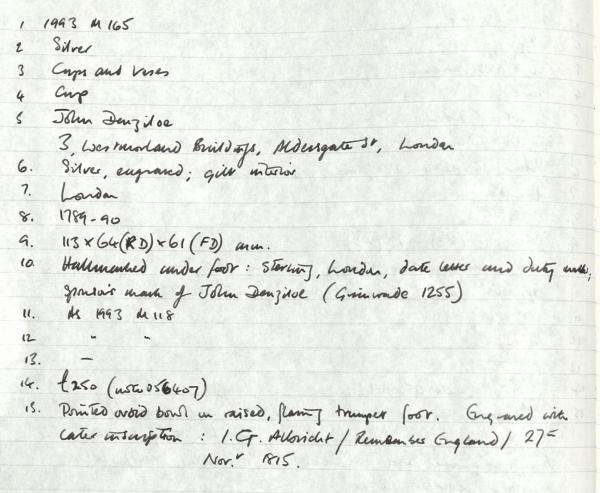 1 1993 M 165
2 Silver
3 Cups and vases
4 Cup
5 John Denziloe
3, Westmorland Buildings, Aldersgate St, London
6. Silver, engraved; gilt interior
7. London
8. 1789-90
9. 113 x 64 (RD) x 61 (FD) mm.
10. Hallmarked under foot: Sterling, London, date letter and duty mark;
sponsor's mark of John Denziloe (Grimwade 1255)
11. As 1993 M 118
12 " "
13. —
14. £250 (056407)
15. Pointed ovoid bowl on raised, flaring trumpet foot. Engraved with
later inscription : I.G. Albricht / Remember England / 27
Nov.r 1815.